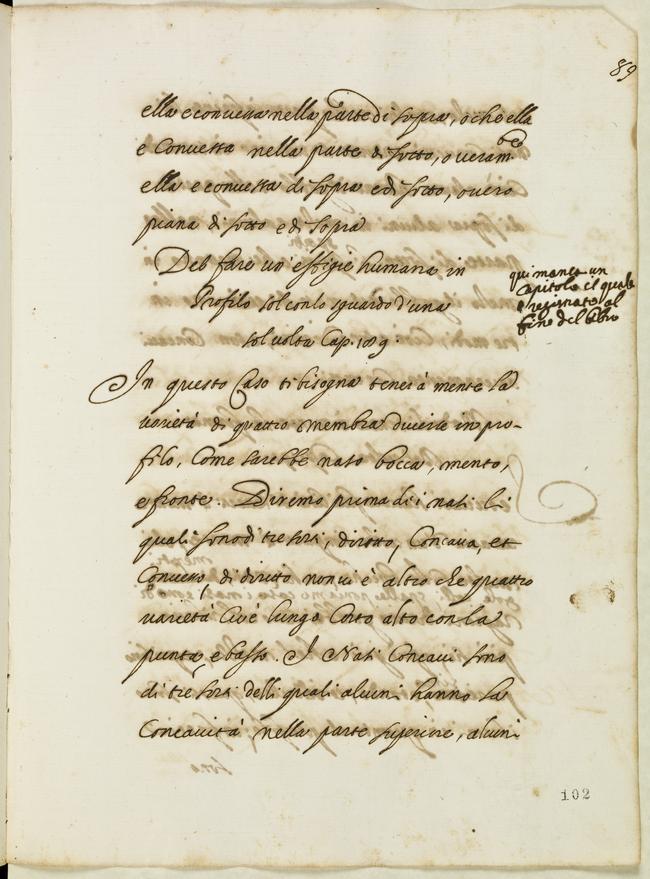 89
ella e convessa nella parte di sopra, o che ella
e Convessa nella parte di sotto, o veram.te
ella e convessa di sopra e di sotto, overo
piana di sotto e di sopra
Del fare un' effigie humana in
Profilo sol con lo sguardo d'una
sol volta Cap. 189.
qui manca un
Capitolo il quale
è registrato al
fine del libro
In questo Caso ti bisogna tener à mente la
varietà di quattro membra diverse in pro-
filo, Come sarebbe naso bocca, mento,
e fronte. Diremo prima de i nasi li
quali sono di tre sorti, diritto, Concavo, et
Convesso, di diritto non vi è altro che quattro
varietà Cioè lungo Corto alto con la
punta, e basso. I Nasi Concavi sono
di tre sorti delli quali alcuni hanno la
Concavità nella parte superiore, alcuni
sono
102